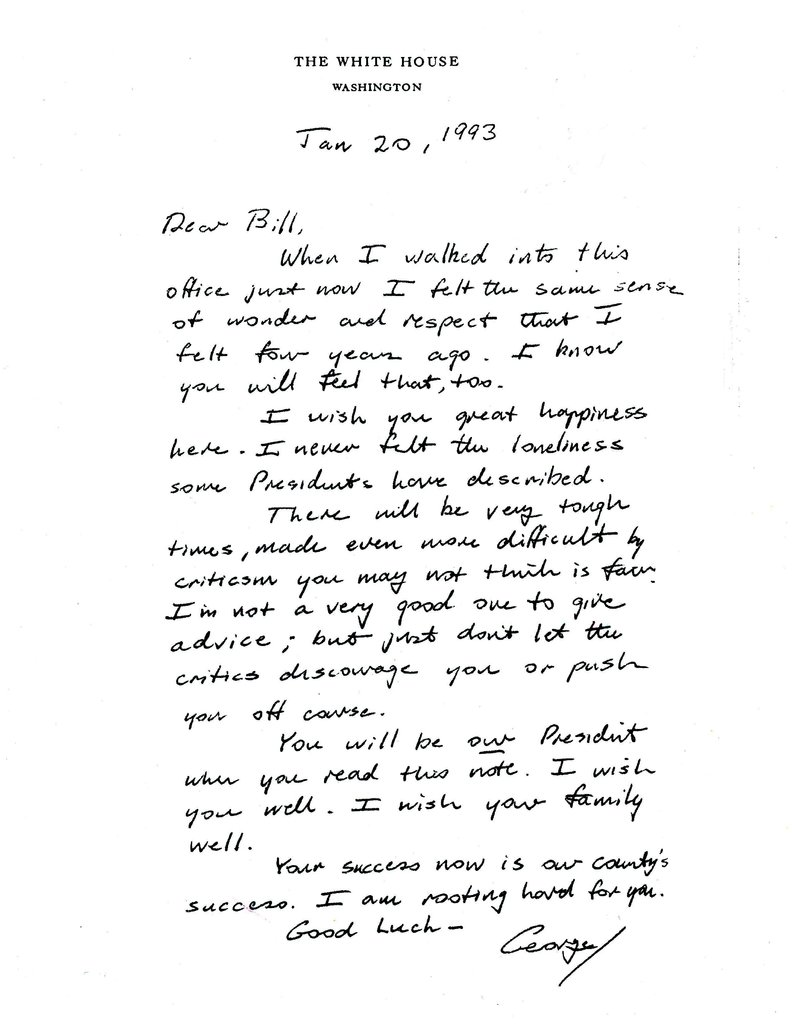 THE WHITE HOUSE
WASHINGTON
Jan 20, 1993
Dear Bill,
When I walked into this
office just now I felt the same sense
of wonder and respect that I
felt four years ago. I know
you will feel that, too.
I wish you great happiness
here. I never felt the loneliness
some Presidents have described.
There will be very tough
times, made even more difficult by
criticism you may not think is fair.
I'm not a very good one to give
advice; but just don't let the
critics discourage you or push
you off course.
You will be our President
when you read this note. I wish
you well. I wish your family
well.
Your success now is our county's
success. I am rooting hard for you.
Good Luck —
George